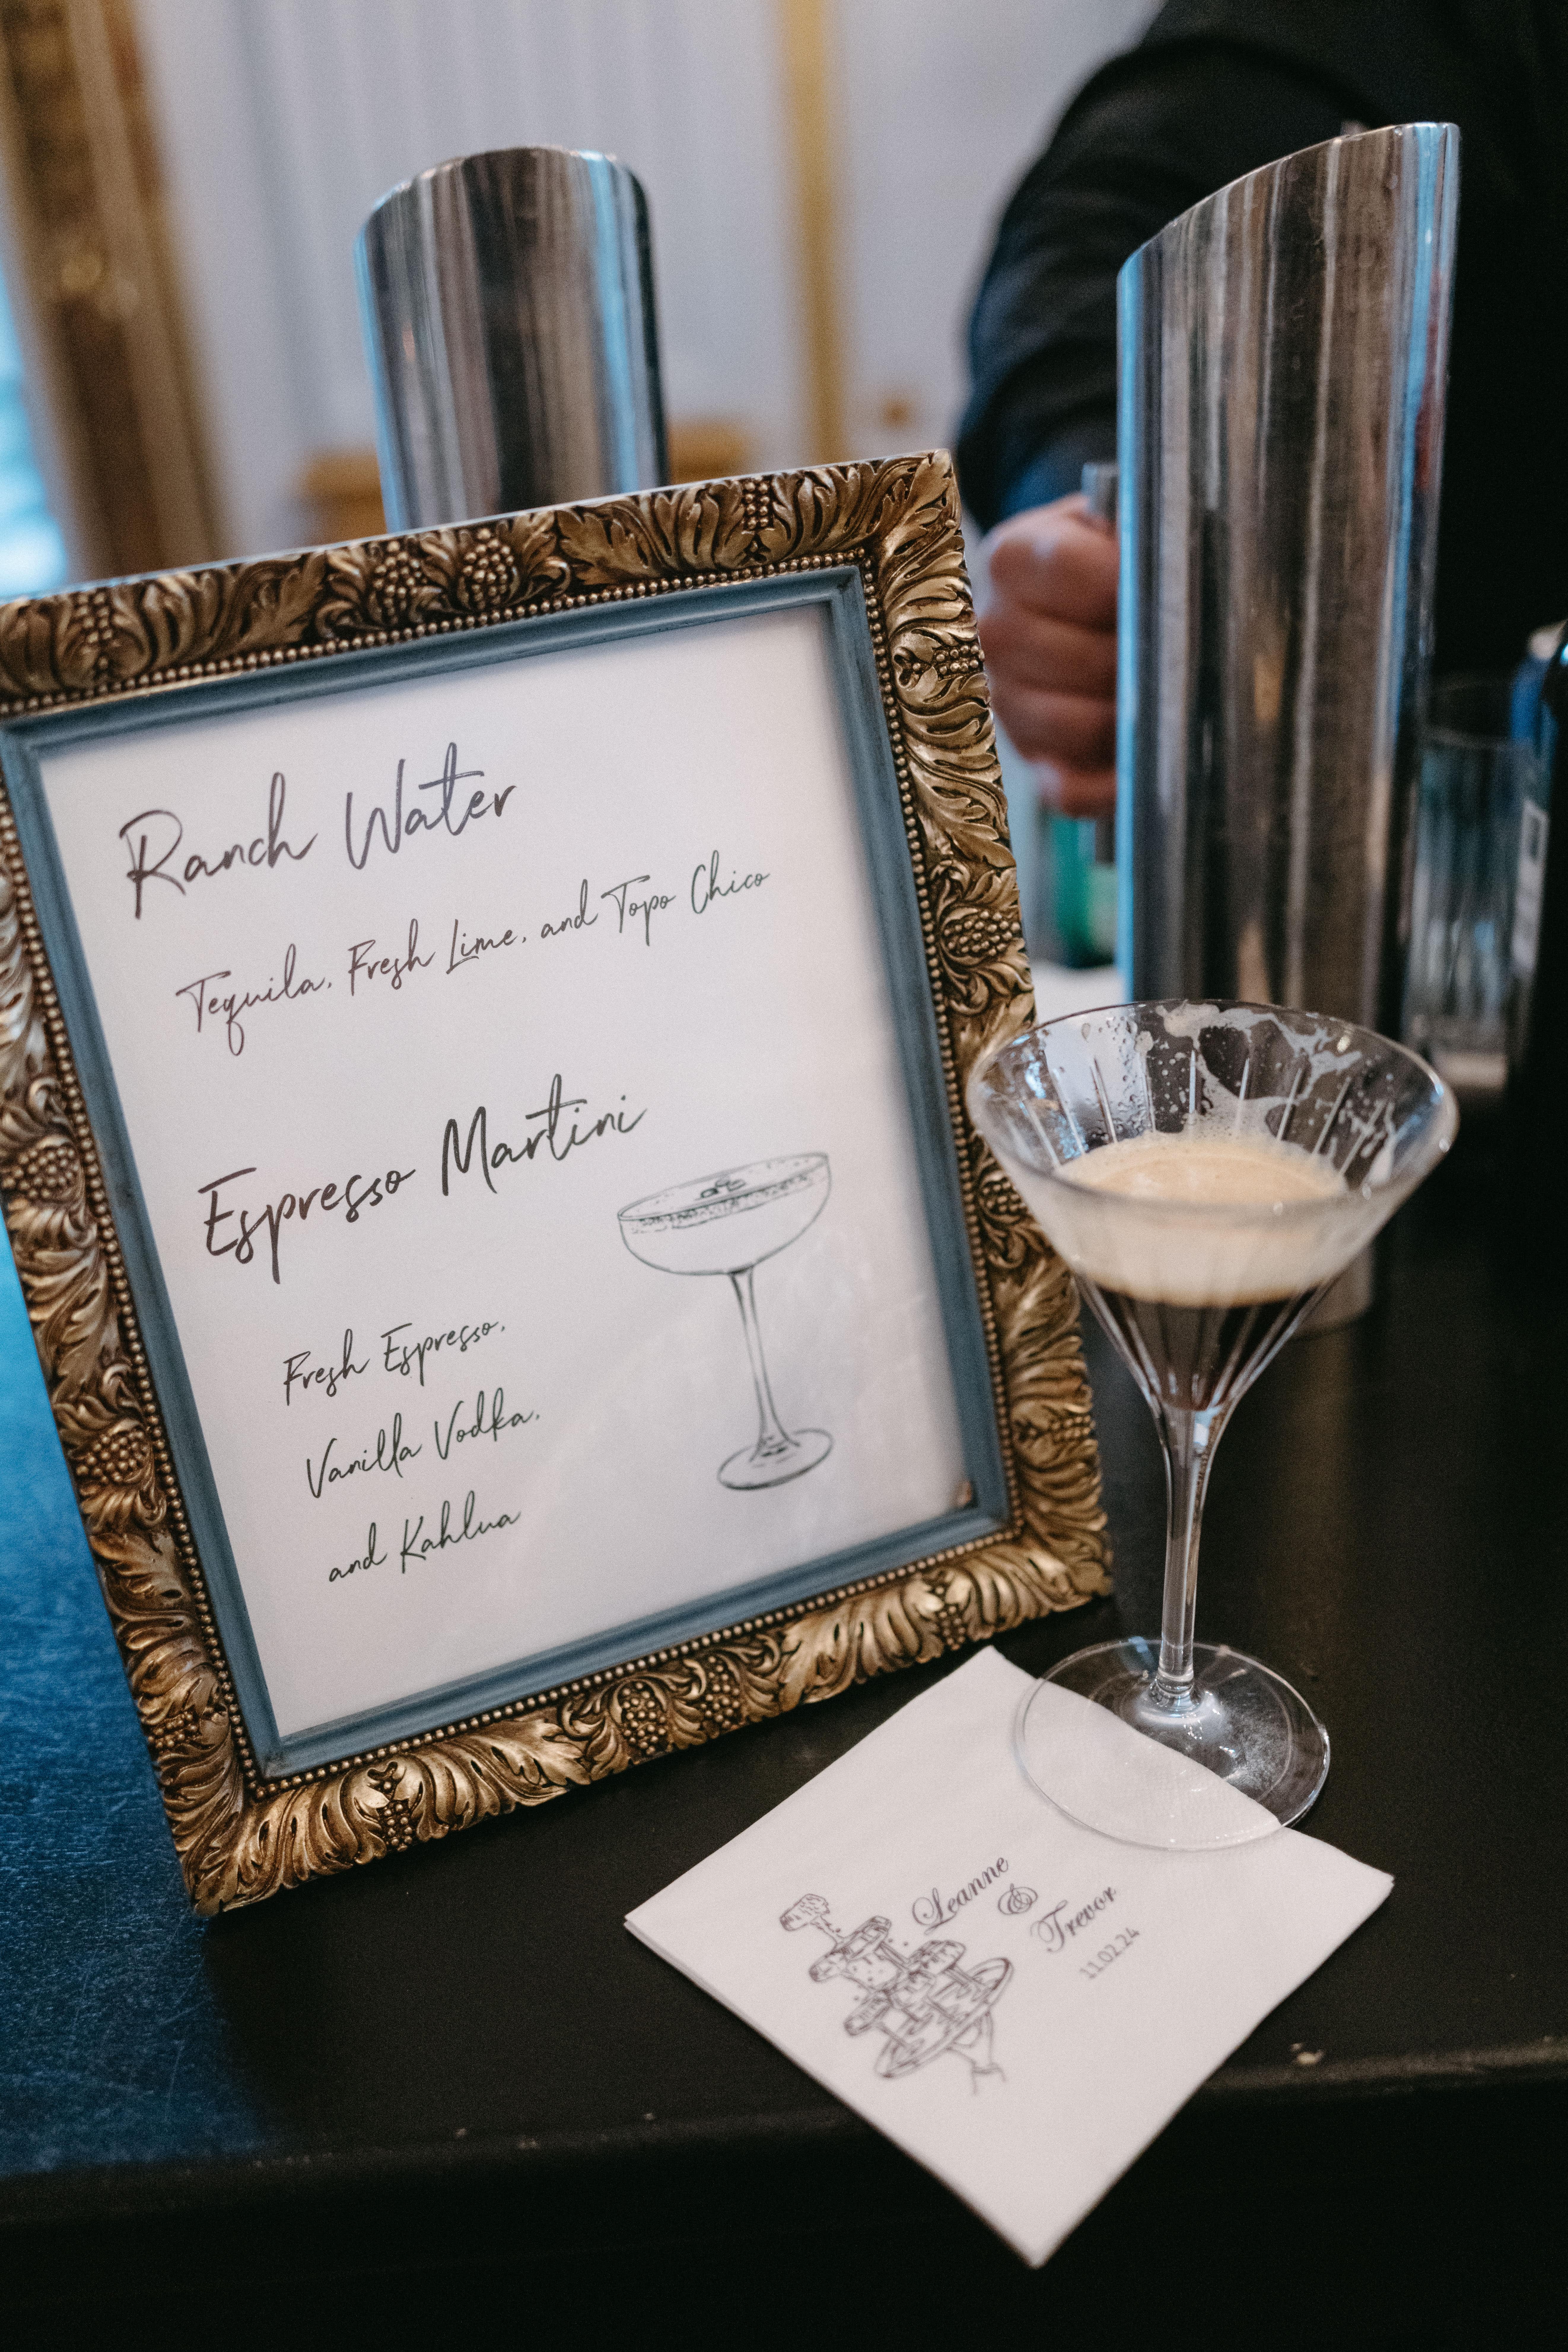 Ranch Water
Tequila, Fresh Lime, and Topo Chico
Espresso Martini
Fresh Espresso,
Vanilla Vodka,
and Kahlua
Leanne
&
Trevor
11.02.24